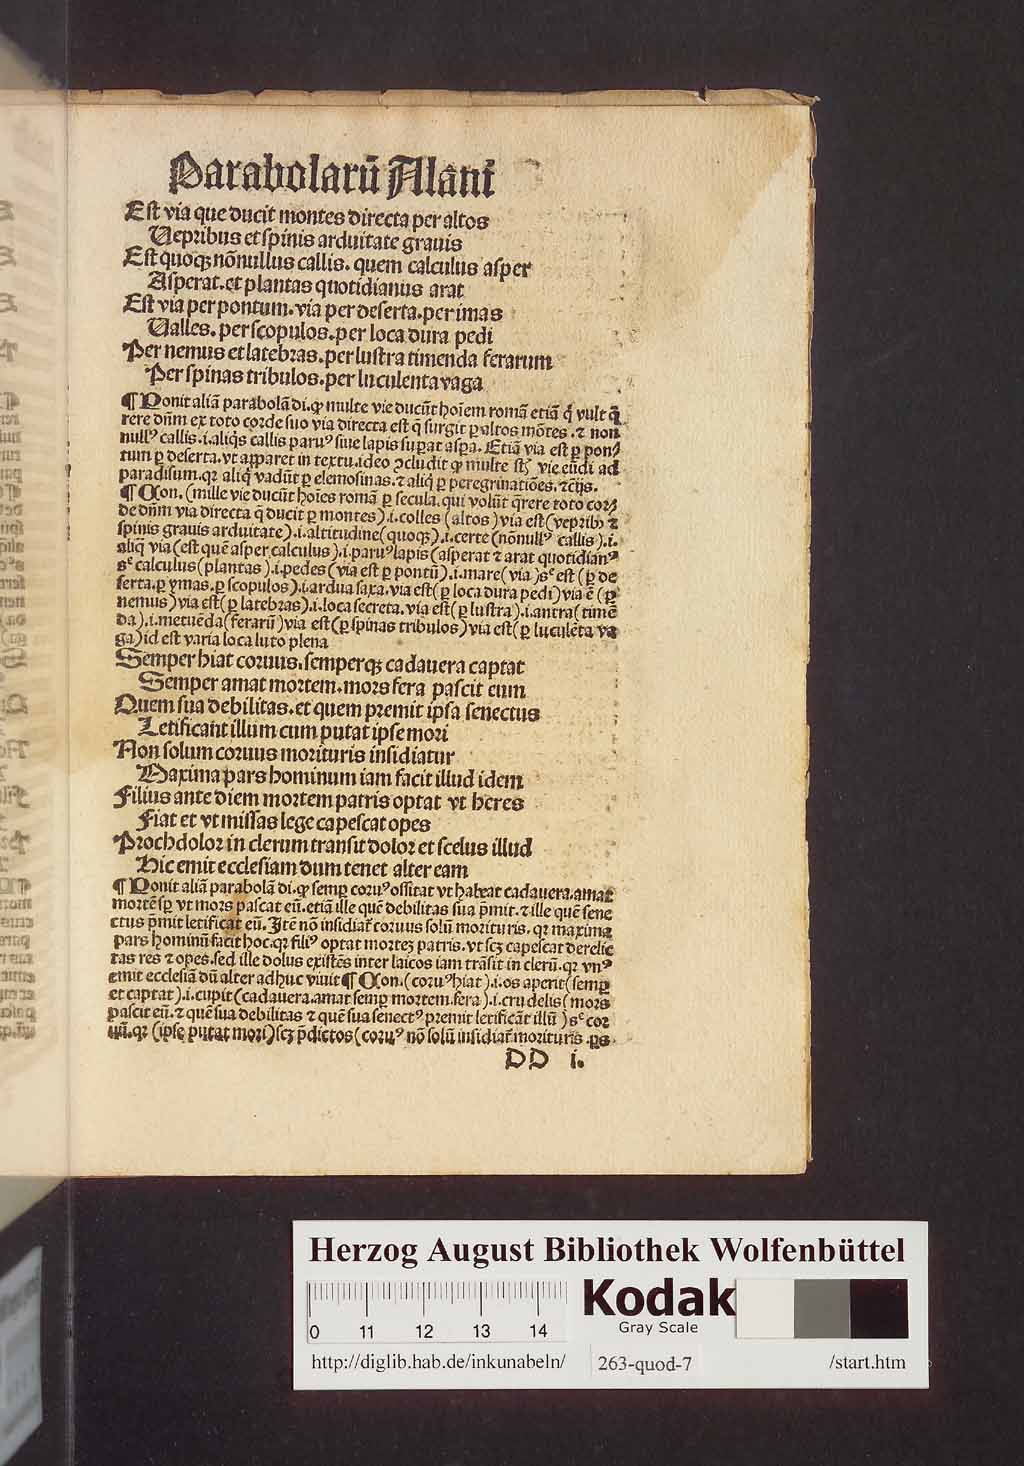 Parabolarū Alani
Est via que ducit montes directa per altos
Uepribus et spinis arduitate grauis
Est quoqꝫ nōnullus callis. quem calculus asper
Asperat. et plantas quotidianus arat
Est via per pontum. via per deserta. per imas
Ualles. per scopulos. per loca dura pedi
Per nemus et latebras. per lustra timenda ferarum
Per spinas tribulos. per luculenta vaga
¶ Ponit aliā parabolā di. ꝙ multe vie ducūt hoīem romā etiā q̇ vult q̄
rere dn̄m ex toto corde suo via directa est q̄ surgit ꝑ altos mōtes. ⁊ non
nullꝰ callis .i. aliq̇s callis paruꝰ siue lapis suꝑat asꝑa. Etiā via est ꝑ pon
tum ꝑ deserta. vt apparet in textu. ideo ꝯcludit ꝙ multe st̄ vie eūdi ad
paradisum. qꝛ aliq̇ vadūt ꝑ elemosinas. ⁊ aliq̇ ꝑ peregrinatiōes. ⁊cṫis.
¶ Con. (mille vie ducūt hoīes romā ꝑ secula. qui volūt q̄rere toto cor
de dn̄m via directa q̄ ducit ꝑ montes) .i. colles (altos) via est (vepribꝫ ⁊
spinis grauis arduitate) .i. altitudine (quoqꝫ) .i. certe (nōnullꝰ callis) .i.
aliq̄ via (est quē asper calculus) .i. paruꝰ lapis (asperat ⁊ arat quotidianꝰ
sᶜ calculus (plantas) .i. pedes (via est ꝑ pontū) .i. mare (via) sᶜ est (ꝑ de
serta. ꝑ ymas. ꝑ scopulos) .i. ardua saxa. via est (ꝑ loca dura pedi) via ē (ꝑ
nemus) via est (ꝑ latebras) .i. loca secreta. via est (ꝑ lustra) .i. antra (timē
da) .i. metuēda (ferarū) via est (ꝑ spinas tribulos) via est (ꝑ luculēta va
ga) id est varia loca luto plena
Semper hiat coruus. semperqꝫ cadauera captat
Semper amat mortem. mors fera pascit eum
Quem sua debilitas. et quem premit ipsa senectus
Letificant illum cum putat ipse mori
Non solum coruus morituris insidiatur
Maxima pars hominum iam facit illud idem
Filius ante diem mortem patris optat vt heres
Fiat et vt missas lege capescat opes
Proch dolor in clerum transit dolor et scelus illud
Hic emit ecclesiam dum tenet alter eam
¶ Ponit aliā parabolā di. ꝙ semꝑ coruꝰ ossitat vt habeat cadauera. amat
mortē sꝑ vt mors pascat eū. etiā ille quē debilitas sua p̄mit. ⁊ ille quē sene
ctus p̄mit letificat eū. Itē nō insidiat̄ coruus solū morituris. qꝛ maxima
pars hominū facit hoc. qꝛ filiꝰ optat morteꝫ patris. vt scꝫ capescat derelic
tas res ⁊ opes. sed ille dolus existēs inter laicos iam trāsit in clerū. qꝛ vnꝰ
emit ecclesiā dū alter adhuc viuit ¶ Con. (coruꝰ hiat) .i. os aperit (semꝑ
et captat) .i. cupit (cadauera. amat semꝑ mortem. fera) .i. crudelis (mors
pascit eū. ⁊ quē sua debilitas ⁊ quē sua senectꝰ premit letificāt illū) sᶜ cor
uū. qꝛ (ipse putat mori) scꝫ p̄dictos (coruꝰ nō solū insidiat̄ morituris. ꝑs
DD i.
Herzog August Bibliothek Wolfenbüttel
0 11 12 13 14
Kodak
Gray Scale
http://diglib.hab.de/inkunabeln/ 263-quod-7 /start.htm